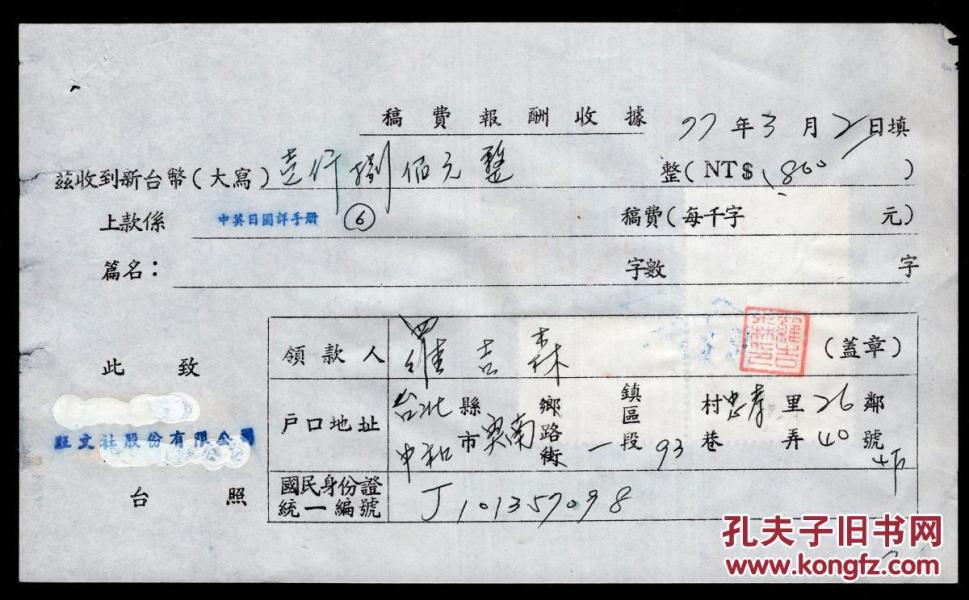 稿費報酬收據
77年3月2日填
茲收到新台幣(大寫)壹仟捌佰元整 整(NT$1,800)
上款係 中英日圖詳手册 ⑥ 稿費(每千字 元)
篇名: 字數 字
此致
旺文社股份有限公司
台照
領款人 羅吉森 (蓋章)
戶口地址 台北縣 鄉鎮 村忠孝里26鄰
中和市 路街 區 一段 93巷 弄40號 4F
國民身份證統一編號 J101357098
孔夫子旧书网
www.kongfz.com